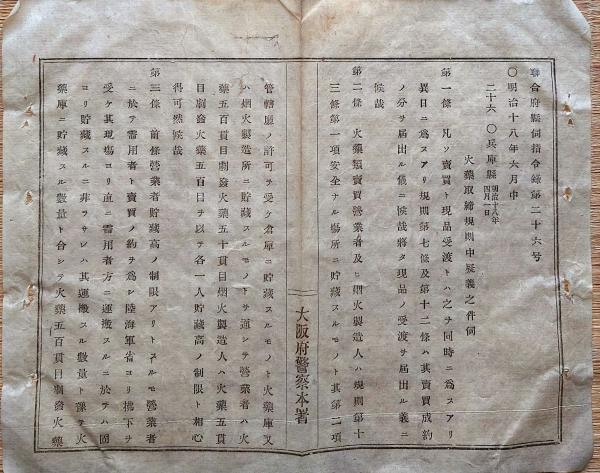 聯合府縣伺指令錄第二十六号
〇明治十八年六月中
二十六 〇兵庫縣 明治十八年四月一日
火藥取締規則中疑義之件伺
第一條 凡ソ賣買ト現品受渡トハ之ヲ同時ニ爲スアリ
異日ニ爲スアリ規則第七條及第十二條ハ其賣買成約
ノ分ヲ届出ル儀ニ候哉將タ現品ノ受渡ヲ届出ル義ニ
候哉
第二條 火藥類賣買營業者及ヒ烟火製造人ハ規則第十
三條第一項安全ナル塲所ニ貯藏スルモノト其第二項
大阪府警察本署
管轄廳ノ許可ヲ受ケ倉庫ニ貯藏スルモノト火藥庫又
ハ烟火製造所ニ貯藏スルモノトヲ通シテ營業者ハ火
藥五百貫目劇發火藥五十貫目烟火製造人ハ火藥五貫
目劇發火藥五百目ヲ以テ各一人貯藏高ノ制限ト相心
得可然候哉
第三條 前條營業者貯藏高ノ制限アリトスルモ營業者
ニ於テ需用者ト賣買ノ約ヲ爲シ陸海軍省ヨリ拂下ヲ
受ケ其現塲ヨリ直ニ需用者方ニ運搬スルニ於テハ固
ヨリ貯藏スルニ非ラサレハ其運搬スル數量ト豫テ火
藥庫ニ貯藏スル數量ト合シテ火藥五百貫目劇發火藥